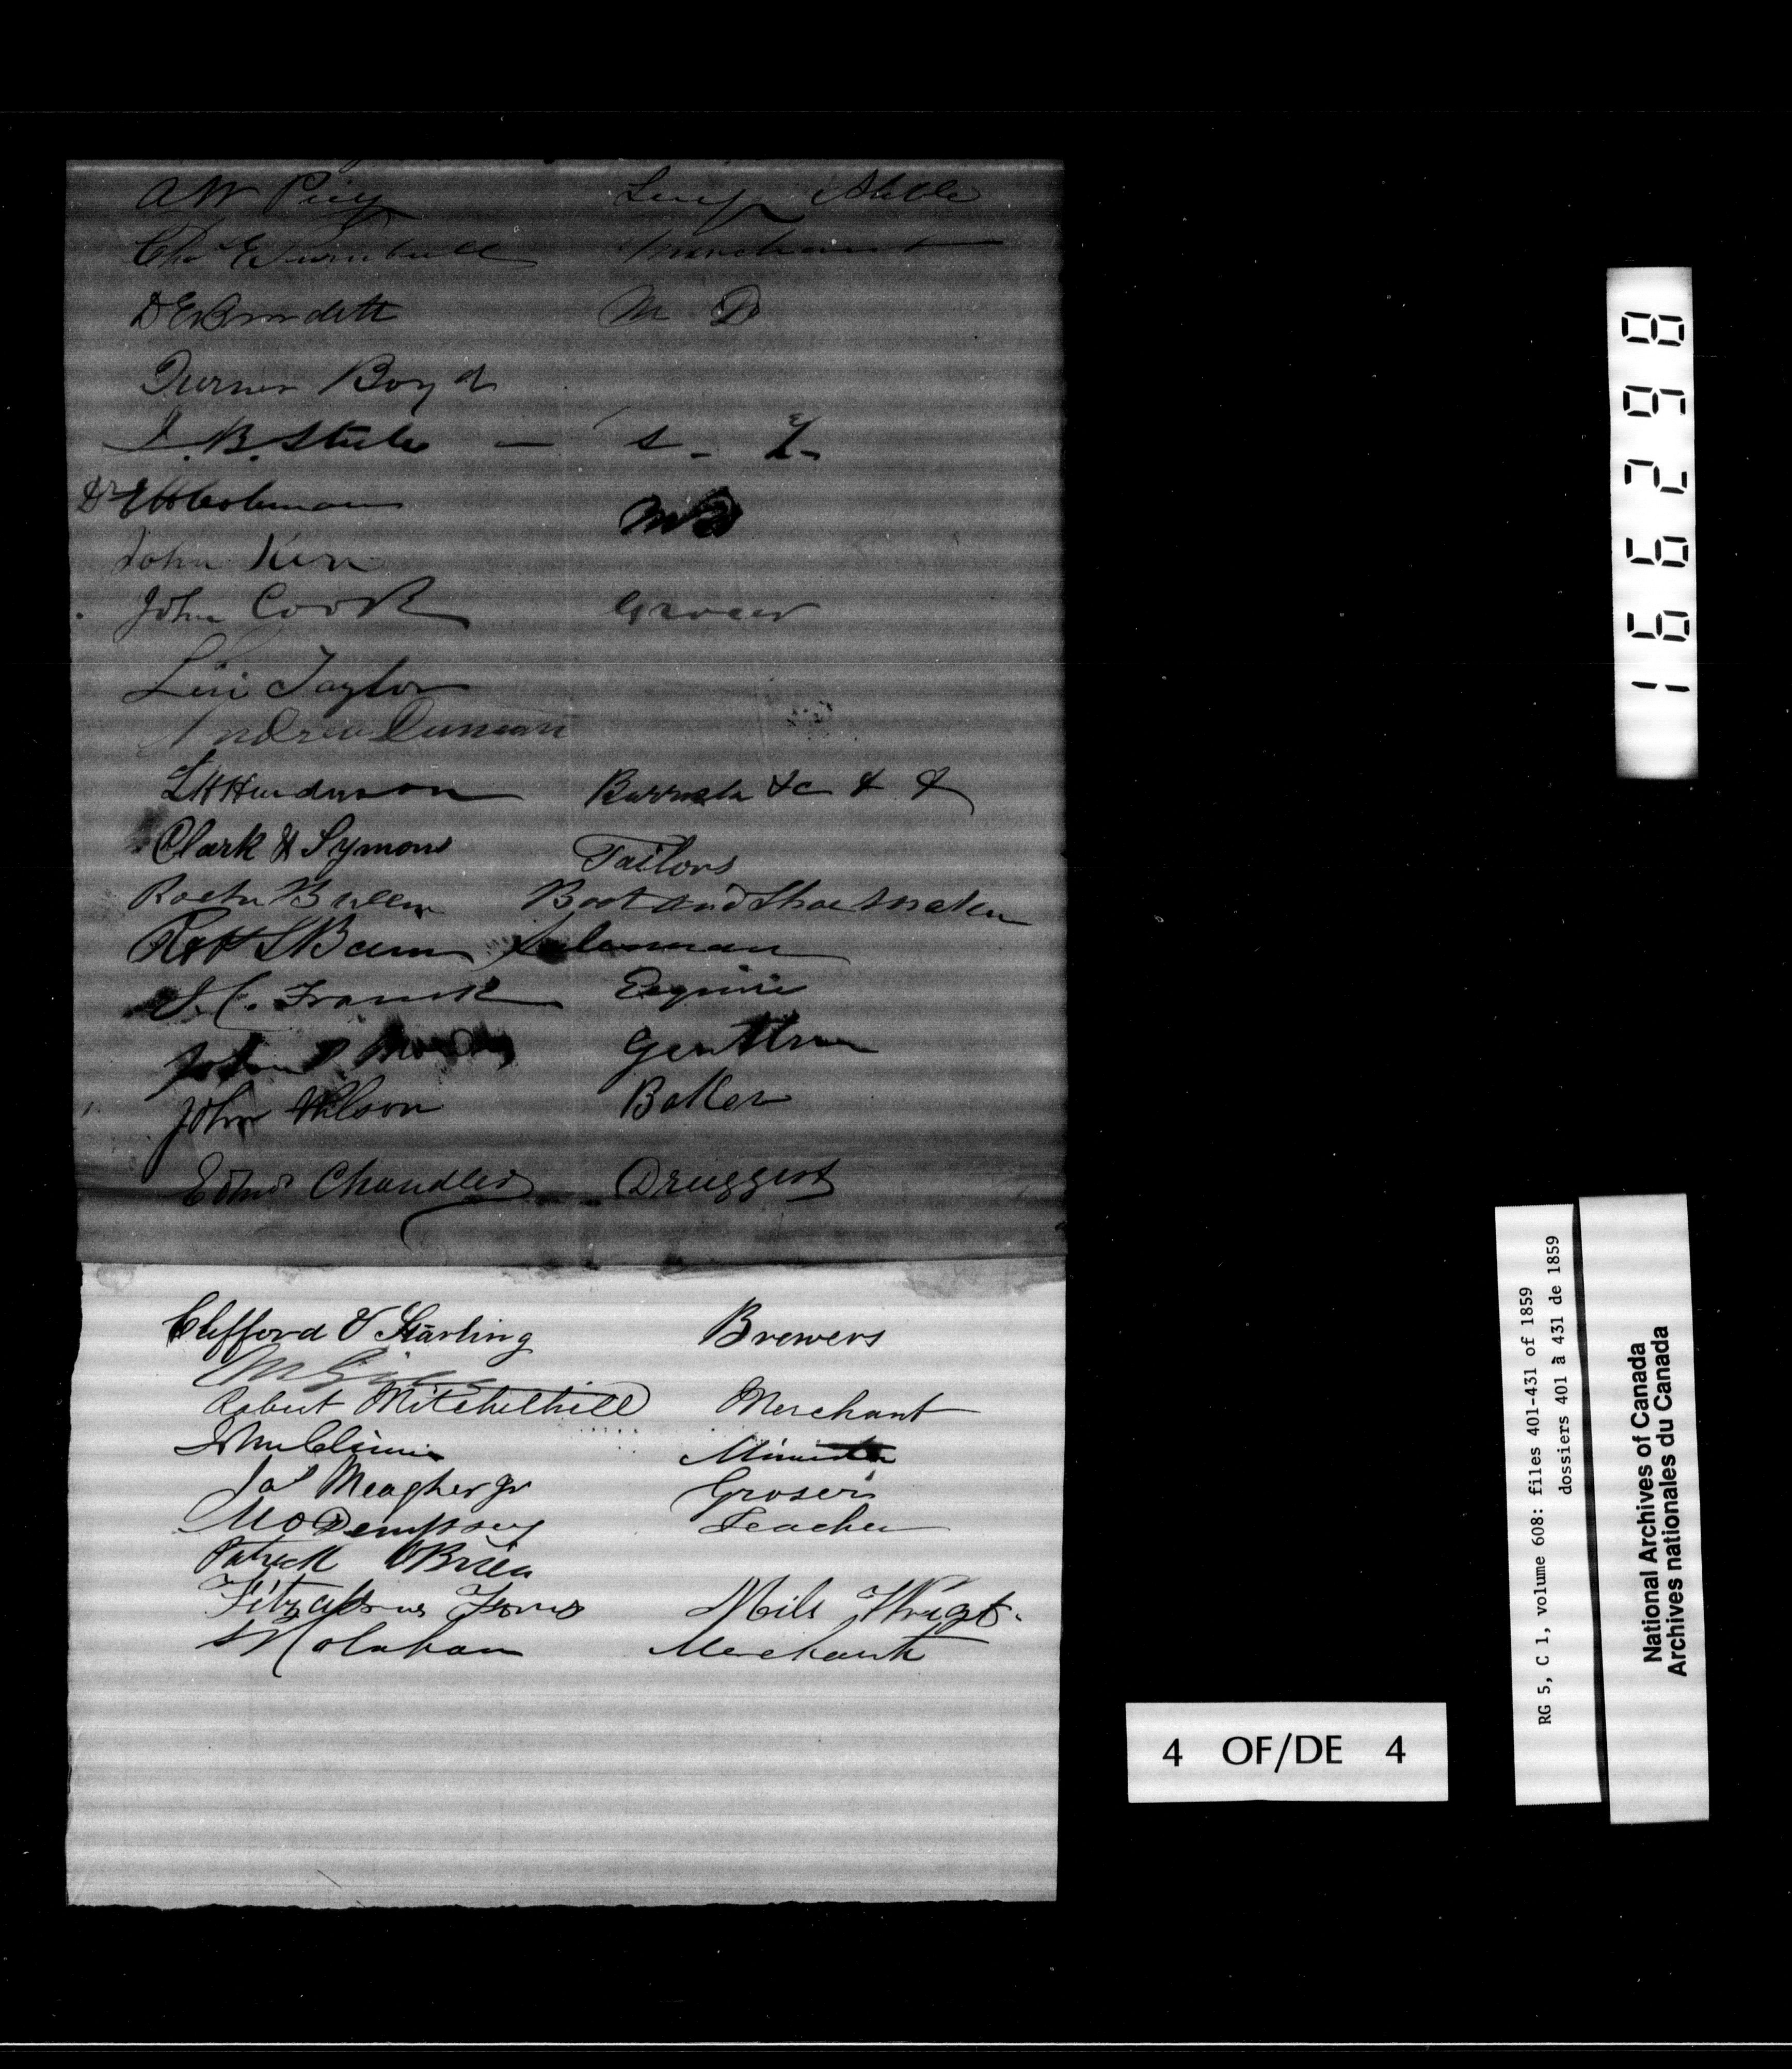 AW
Chas E Turnbull Merchant
D E Burdett M D
Turner Boyd
J. B. Steele
Dr E H Coleman MD
John Kerr
John Cook Grocer
Levi Taylor
Andrew Duncan
L H Henderson &c & &
Clark & Symons Tailors
Bullen Boot and Shoe maker
Robt S Salesman
J. C. Franck Esquire
John
John Wilson Baker
Edmd Chandler Druggist
Clifford & Starling Brewers
Robert Mitchelhill Merchant
John Climie Minister
Jas Meagher Jr Groser
Dempsey Teacher
Patrick OBrien
Merchant
166298
RG 5, C 1, volume 608: files 401-431 of 1859
dossiers 401 à 431 de 1859
National Archives of Canada
Archives nationales du Canada
4 OF/DE 4